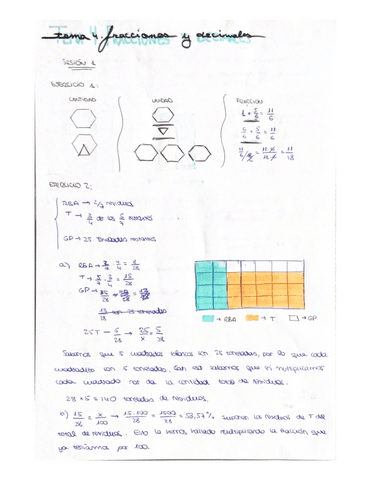 TEMA 4. FRACCIONES Y DECIMALES
tema 4. fracciones y decimales
SESIÓN 1
EJERCICIO 1:
CANTIDAD UNIDAD FRACCIÓN
6/6 + 5/6 = 11/6
11/18
EJERCICIO 2:
RBA → 2/7 residuos
T → 3/4 de los 5/7 restantes
GP → 25 toneladas restantes
a) RBA → 2/7 · 4/4 = 8/28
T → 5/7 · 3/4 = 15/28
25T → 5/28 → 25/x = 5/28
→ RBA → T → GP
Sabemos que 5 cuadrados blancos son 25 toneladas, por lo que cada
cuadradito son 5 toneladas. Con eso sabemos que si multiplicamos
cada cuadrado nos da la cantidad total de residuos.
28 · 5 = 140 toneladas de residuos.
b) 15/28 = x/100 → 15·100/28 = 1500/28 = 53,57% los residuos de T del
total de residuos. Esto lo hemos hallado multiplicando la fracción que
ya teníamos por 100.